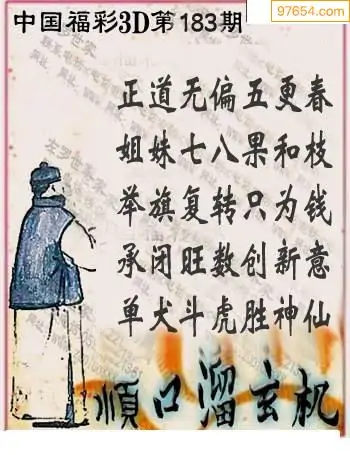 97654.com
中国福彩3D第183期
正道无偏五更春
姐妹七八果和枝
举旗复转只为钱
承闭旺数创新意
单犬斗虎胜神仙
顺口溜玄机